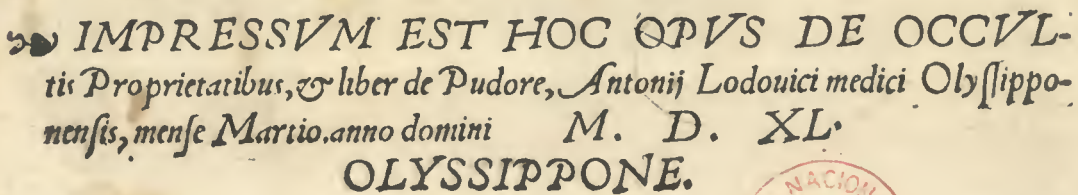 ❧ IMPRESSVM EST HOC OPVS DE OCCVL-
tis Proprietatibus, & liber de Pudore, Antonij Lodouici medici Olyſſippo-
nenſis, menſe Martio. anno domini M. D. XL.
OLYSSIPPONE.
NACION